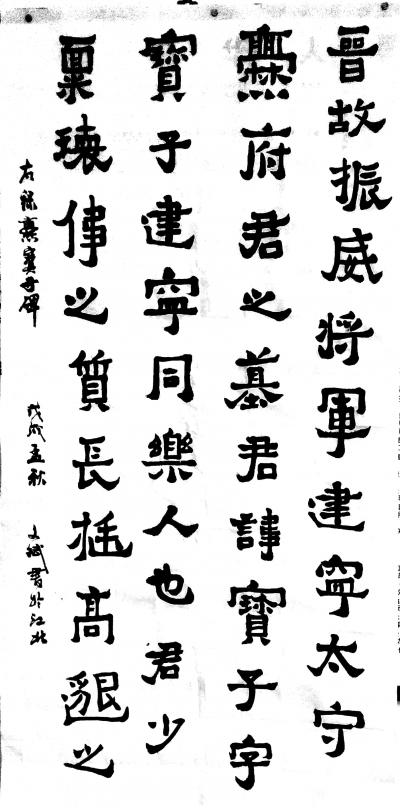 晋故振威將軍建寧太守
爨府君之墓君諱寶子字
寶子建寧同樂人也君少
稟瓌偉之質長挺高邈之
右錄爨寶子碑
戊戌孟秋 文斌書於江北